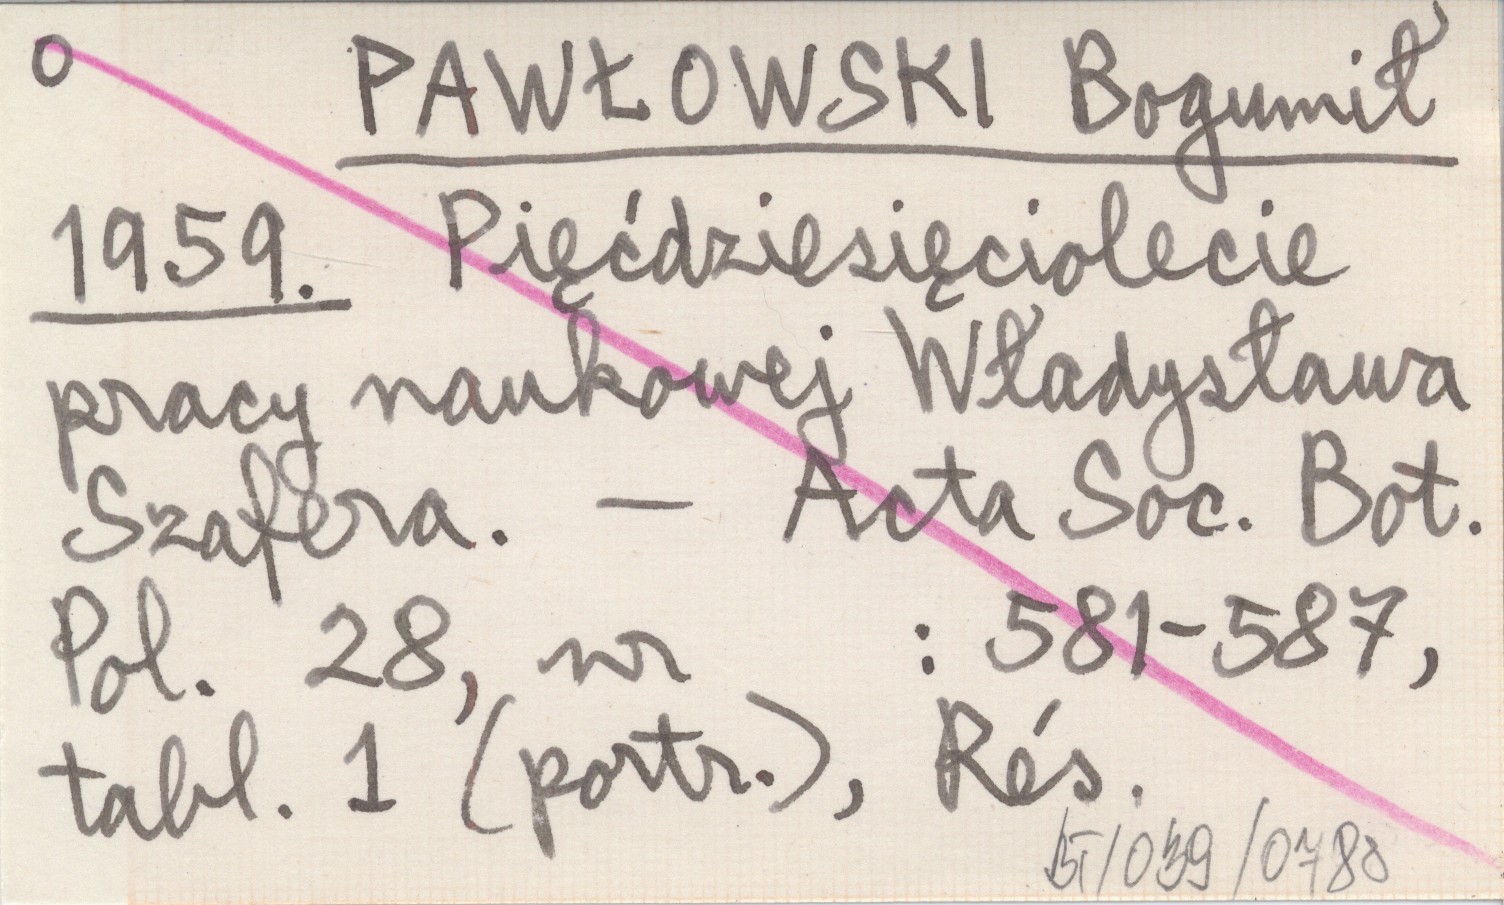 O PAWŁOWSKI Bogumił
1959. Pięćdziesięciolecie
pracy naukowej Władysława
Szafera. — Acta Soc. Bot.
Pol. 28, nr : 581-587,
tabl. 1 (portr.), Rés.
/039/0788